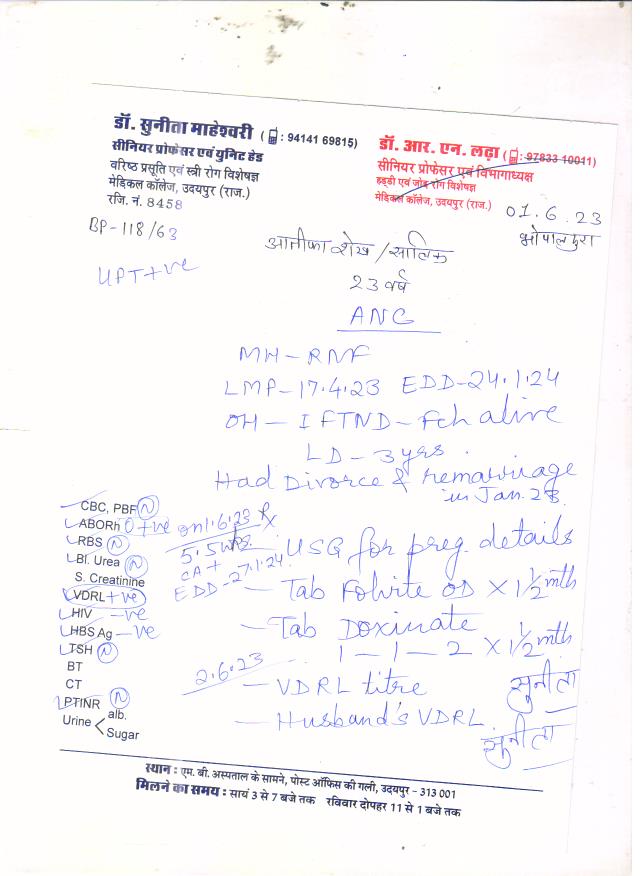 डॉ. सुनीता माहेश्वरी (: 94141 69815)
सीनियर प्रोफेसर एवं युनिट हेड
वरिष्ठ प्रसूति एवं स्त्री रोग विशेषज्ञ
मेडिकल कॉलेज, उदयपुर (राज.)
रजि. नं. 8458
डॉ. आर. एन. लढ़ा (: 97833 10011)
सीनियर प्रोफेसर एवं विभागाध्यक्ष
हड्डी एवं जोड़ रोग विशेषज्ञ
मेडिकल कॉलेज, उदयपुर (राज.)
01.6.23
भोपालपुरा
BP-118/63
UPT+ve
शेख / सालिक
23 वर्ष
ANC
MH-RNF
LMP-17.4.23 EDD-24.1.24
OH- I FTND-Fch alive
LD-3 yrs
Had Divorce & remarriage
in Jan.23.
CBC, PBF N
ABORh O+ve
RBS N
Bl. Urea N
S. Creatinine
VDRL +ve
HIV -ve
HBS Ag -ve
TSH N
BT
CT
PTINR N
Urine < alb.
Sugar
on 1.6.23 Rx
5.5 wks.
CA+
EDD-27.1.24
- USG for preg. details
- Tab Folvite OD × 1½ mth
- Tab Doxinate
1-1-2 × 1½ mth
2.6.23
- VDRL titre
- Husband's VDRL
सुनीता
सुनीता
स्थान : एम. बी. अस्पताल के सामने, पोस्ट ऑफिस की गली, उदयपुर - 313 001
मिलने का समय : सायं 3 से 7 बजे तक रविवार दोपहर 11 से 1 बजे तक